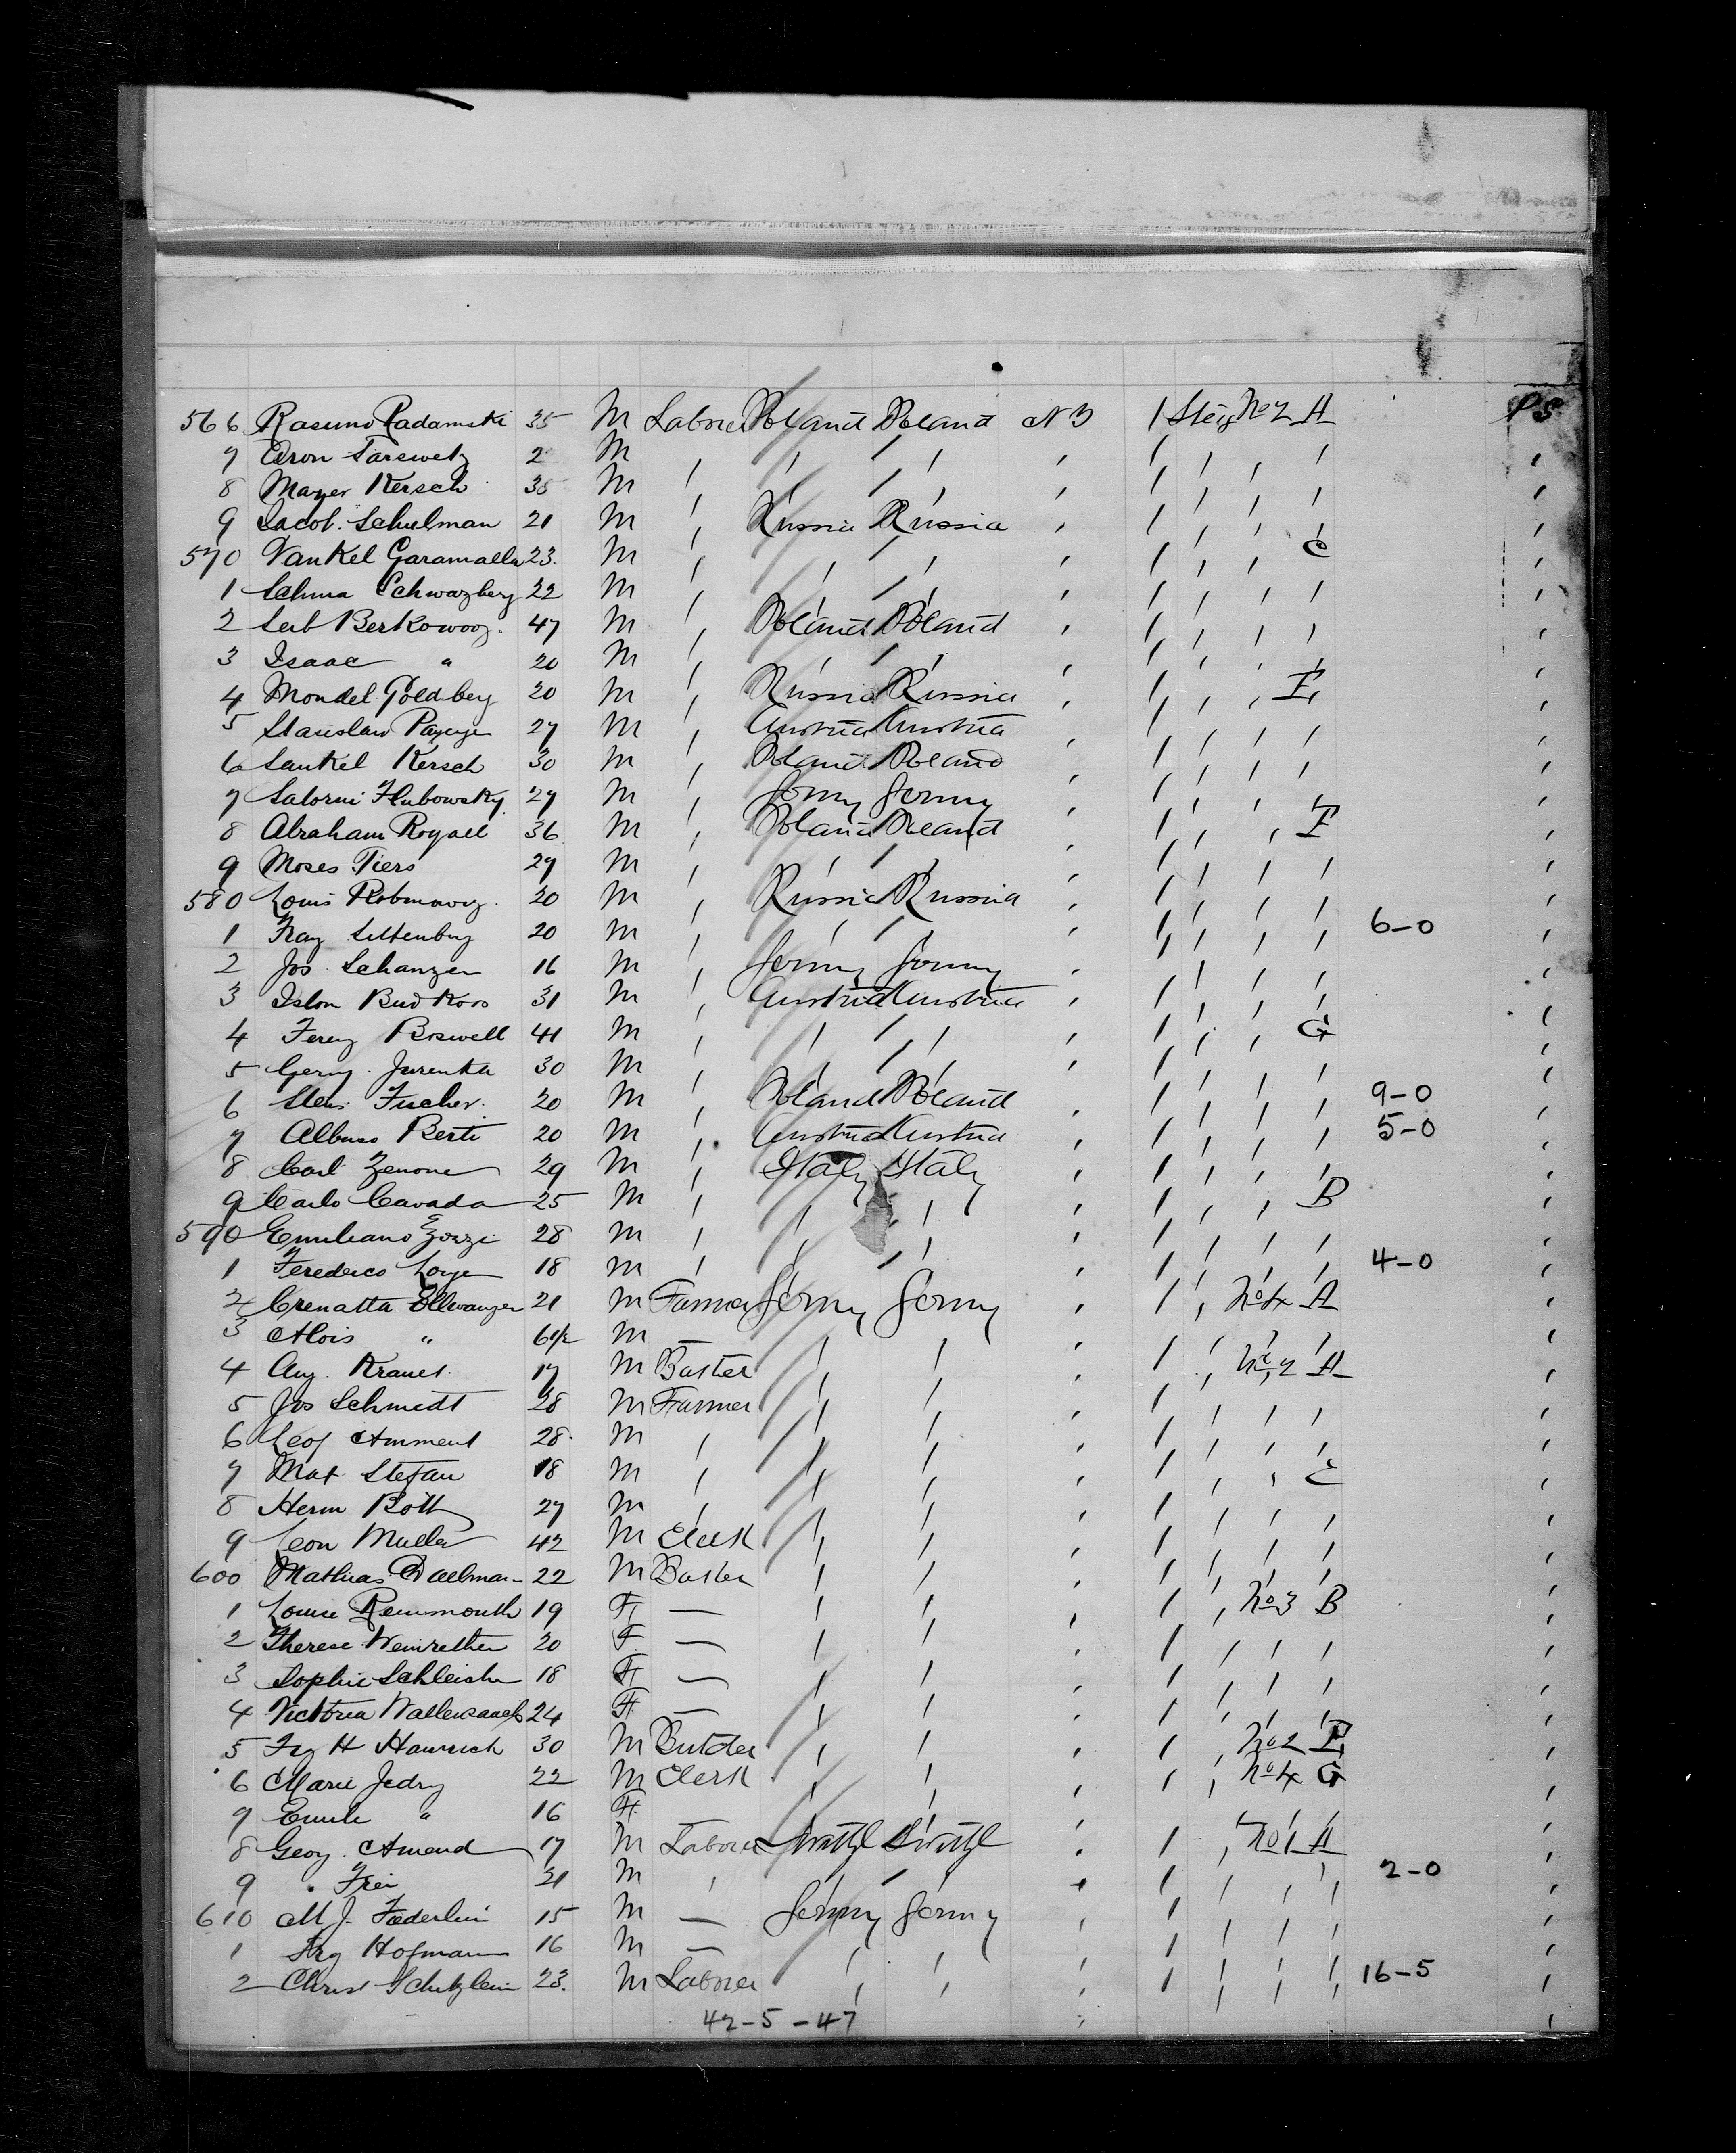 566 Rasumo Radamski 35 M Laborer Poland Poland N Y 1 Steig No 2 A P S
7 Aron Tarswetz 2 M " " " " 1 " " " "
8 Mayer Kersch 35 M " " " " 1 " " " "
9 Jacob Schulman 21 M " Russia Russia " 1 " " " "
570 Yankel Garamalla 23 M " " " " 1 " " C "
1 Schma Schwazberg 22 M " " " " 1 " " " "
2 Leib Berkowoz 47 M " Poland Poland " 1 " " " "
3 Isaac " 20 M " " " " 1 " " " "
4 Mondel Goldberg 20 M " Russia Russia " 1 " " E "
5 Stanislaw 27 M " Austria Austria " 1 " " " "
6 Lankel Kersch 30 M " Poland Poland " 1 " " " "
7 Salomi Hubowsky 27 M " Germy Germy " 1 " " " "
8 Abraham Royall 36 M " Poland Poland " 1 " " F "
9 Moses Tiers 29 M " " " " 1 " " " "
580 Louis Robinowiz 20 M " Russia Russia " 1 " " " "
1 Littenberg 20 M " " " " 1 " " " 6-0 "
2 Jos Schanzer 16 M " Germy Germy " 1 " " " "
3 Budkovo 31 M " Austria Austria " 1 " " " "
4 Ferenz Boswell 41 M " " " " 1 " " G "
5 Jurenka 30 M " " " " 1 " " " "
6 Fischer 20 M " Poland Poland " 1 " " " 9-0 "
7 Albino Berti 20 M " Austria Austria " 1 " " " 5-0 "
8 Carl Zenone 29 M " Italy Italy " 1 " " " "
9 Carlo Cavada 25 M " " " " 1 " " B "
590 Emiliano Gozzi 28 M " " " " 1 " " " "
1 Feredeico 18 M " " " " 1 " " " 4-0 "
2 Crenatta Ellwanger 21 M Farmer Germy Germy " 1 " No 4 A "
3 Alois " 6 1/2 M " " "
4 Aug. Kraues 17 M Baker " " " 1 " No 2 A "
5 Jos Schmidt 28 M Farmer " " " 1 " " " "
6 Leof Amment 28 M " " " " 1 " " " "
7 Mat Stefan 18 M " " " " 1 " " C "
8 Herm Roth 27 M " " " " 1 " " " "
9 Leon Muller 42 M Clerk " " " 1 " " " "
600 Mathias 22 M Baker " " " 1 " " " "
1 Louise Remmouth 19 F — " " " 1 " No 3 B "
2 Therese Weinrether 20 F — " " " 1 " " " "
3 Sophie Schleicher 18 F — " " " 1 " " " "
4 Victoria 24 F — " " " 1 " " " "
5 H Hainrich 30 M Butcher " " " 1 " No 2 E "
6 Marie Jedry 22 M Clerk " " " 1 " No 4 G "
7 Emile " 16 F " " "
8 Geog. Amend 17 M Laborer " 1 " No 1 A "
9 " Frei 21 M " " " " 1 " " " 2-0 "
610 M J. Foederlein 15 M — Germy Germy " 1 " " " "
1 Hofmann 16 M — " " " 1 " " " "
2 Christ Schutzlein 23 M Laborer " " " 1 " " " 16-5 "
42-5-47